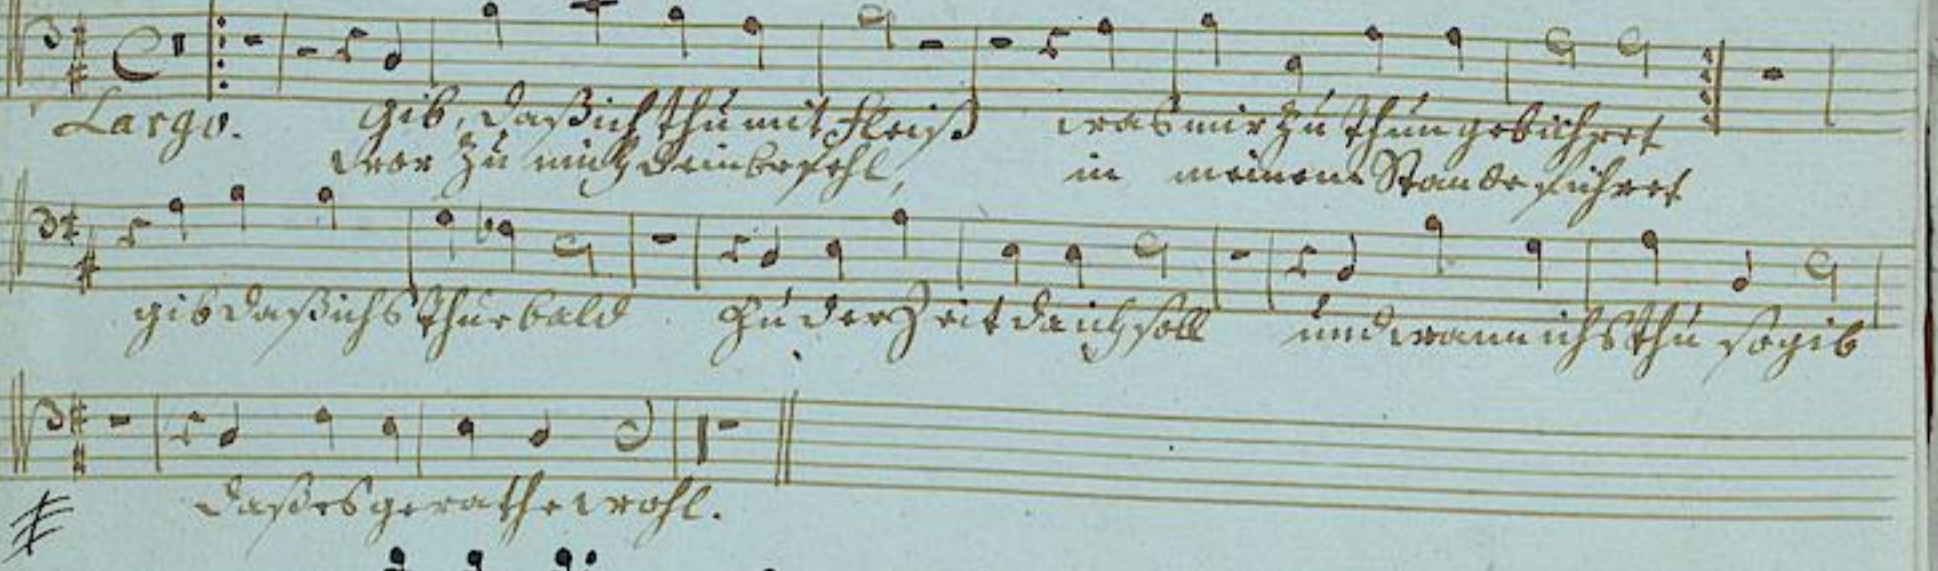 Largo. gib, daß ich thu mit Fleiß was mir zu thun gebühret
wor zu mich dein befehl, in meinem Stande führet
gib daß ichs thue bald zu der Zeit da ich soll und wann ichs thu so gib
daß es gerathe wohl.